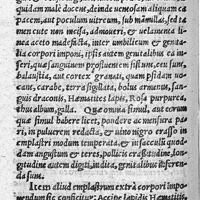 quidam male docent, deinde uenosam aliquam ca
pacem, aut poculum uitreum, sub mamillas, sed ta
men cute non incisa, admoueri, & uelamenta li
nea aceto madefacta, inter umbilicum & genita
lia corpori imponi, ipsis autem genitalibus ea inse
ri, quæ sanguinem profluentem sistunt, ceu sunt,
balaustia, aut cortex granati, quam psidiam uo
cant, ebarae, terra sigillata, bolus armenus, san
guis draconis, Hæmatites lapis, Rosa purpurea,
thus album, galla. Quæ omnia simul, aut eorum
quæ simul habere licet, pondere ac mensura pa
ri, in puluerem redacta, & uino nigro crasso in
emplastri modum temperata, & in sacculis quod
dam angustum & teres, pollicis crassitudine, lon
gitudine autem digiti, indita, genitalibus inferen
da sunt.
Item aliud emplastrum extrà corpori impo
nendum sic conficitur: Accipe lapidis Hæmatitis,